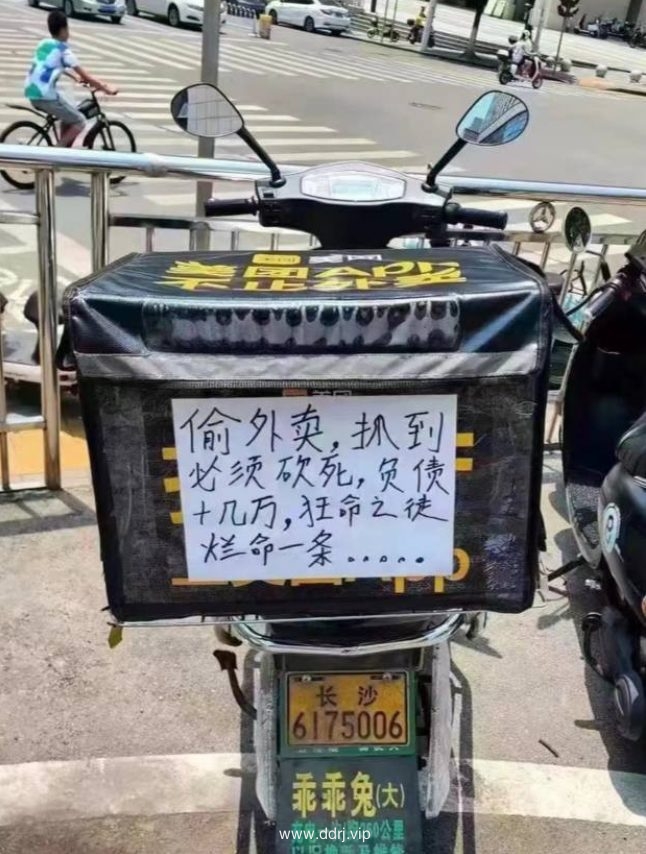 美团App
不止外卖
美团
偷外卖,抓到
必须砍死,负债
十几万,狂命之徒
烂命一条......
App
长沙
6175006
乖乖兔(大)
公里
www.ddrj.vip